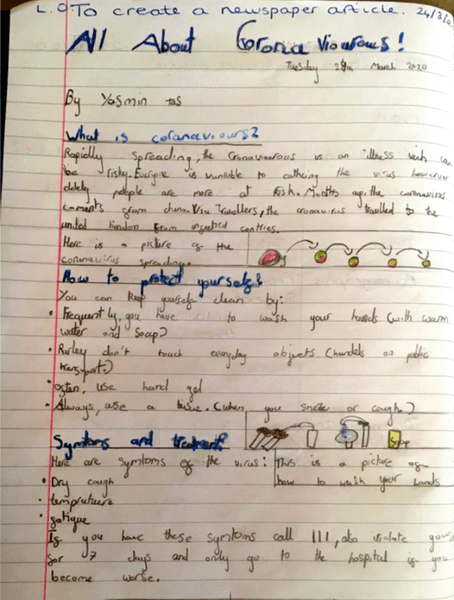 L.O To create a newspaper article. 24/3/
All About Corona Viourous!
Tuesday 24th March 2020
By Yasmin
What is coranaviours?
Rapidly spreading, the cronaviourous is an illness wich can
be risky. Everyone is vunerable to cathcing the virus however
elderly people are more at Risk. Months ago, the coronavirus
coments from china. Via Travellers, the cronavirus travelled to the
united kindom from infected contries.
Here is a picture of the
coronavirus spreading.
How to protect yourself?
You can keep yourself clean by:
• Frequently, you have to wash your hands (with warm
water and soap)
• Rarley don't touch everyday objects. (handels on public
transport.)
• often, use hand gel
• Always, use a tissue. (when you sneeze or cough.)
Symtoms and treatment
Here are symtoms of the virus:
This is a picture of
how to wash your hands
• Dry cough
• tempratuere
• fatique
If you have these symtoms call 111, also isolate
for 7 days and only go to the hospital if you
become worse.